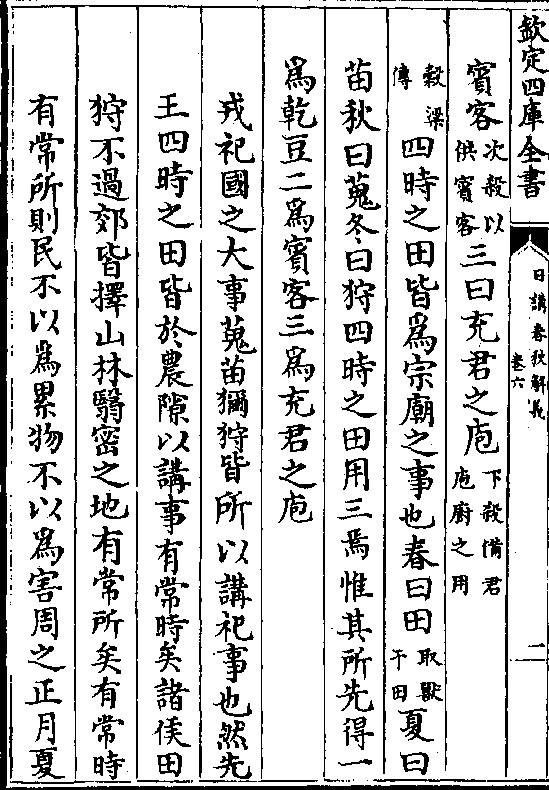 欽定四庫全書
日講春秋解義
卷六
二
賓客次殺以供賓客三曰充君之庖下殺備君庖廚之用
穀梁傳四時之田皆爲宗廟之事也春曰田取獸于田夏曰
苗秋曰蒐冬曰狩四時之田用三焉惟其所先得一
爲乾豆二爲賓客三爲充君之庖
戎祀國之大事蒐苗獮狩皆所以講祀事也然先
王四時之田皆於農隙以講事有常時矣諸侯田
狩不過郊皆擇山林翳密之地有常所矣有常時
有常所則民不以爲累物不以爲害周之正月夏